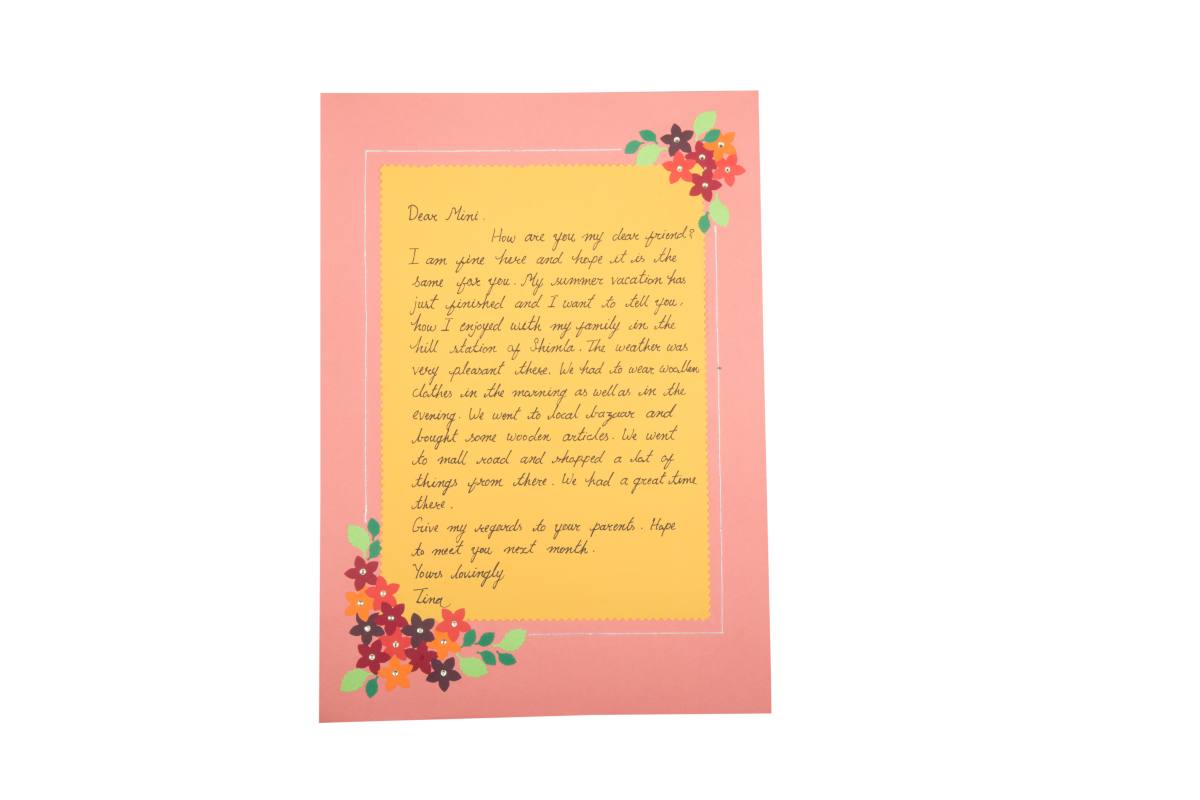 Dear Mini.
How are you, my dear friend?
I am fine here and hope it is the
same for you. My summer vacation has
just finished and I want to tell you,
how I enjoyed with my family in the
hill station of Shimla. The weather was
very pleasant there. We had to wear woollen
clothes in the morning as well as in the
evening. We went to local bazaar and
bought some wooden articles. We went
to mall road and shopped a lot of
things from there. We had a great time
there.
Give my regards to your parents. Hope
to meet you next month.
Yours lovingly
Tina